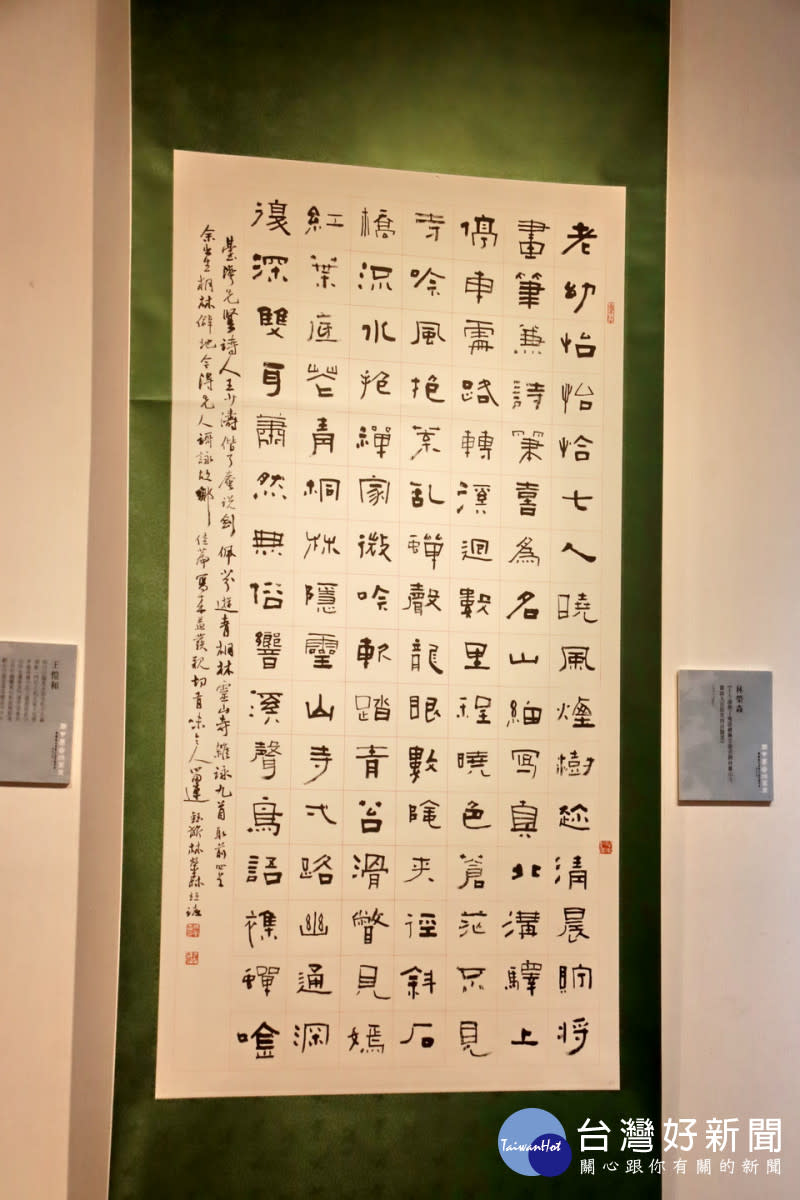 老幼怡怡恰七人曉風煙樹趂清晨貯將
畫筆兼詩筆喜為名山細寫真北溝驛上
停車處路轉溪迴數里程曉色蒼茫只見
寺吟風抱葉乱蟬聲龍眼數陰夾徑斜石
橋流水抱禪家微吟軟踏青苔滑瞥見嫣
紅葉底花青桐林隱靈山寺弌路幽通深
復深雙耳蕭然無俗響溪聲鳥語雜蟬唫
臺灣先賢詩人王少濤偕了庵說劍佩芬遊青桐林靈山寺雜詠九首取前四首
余出生桐林僻地今得先人謳詠故鄉佳篇寫來益發親切有味令人留連 林榮森
林榮森
王愷和
TaiwanHot
台灣好新聞
關心跟你有關的新聞